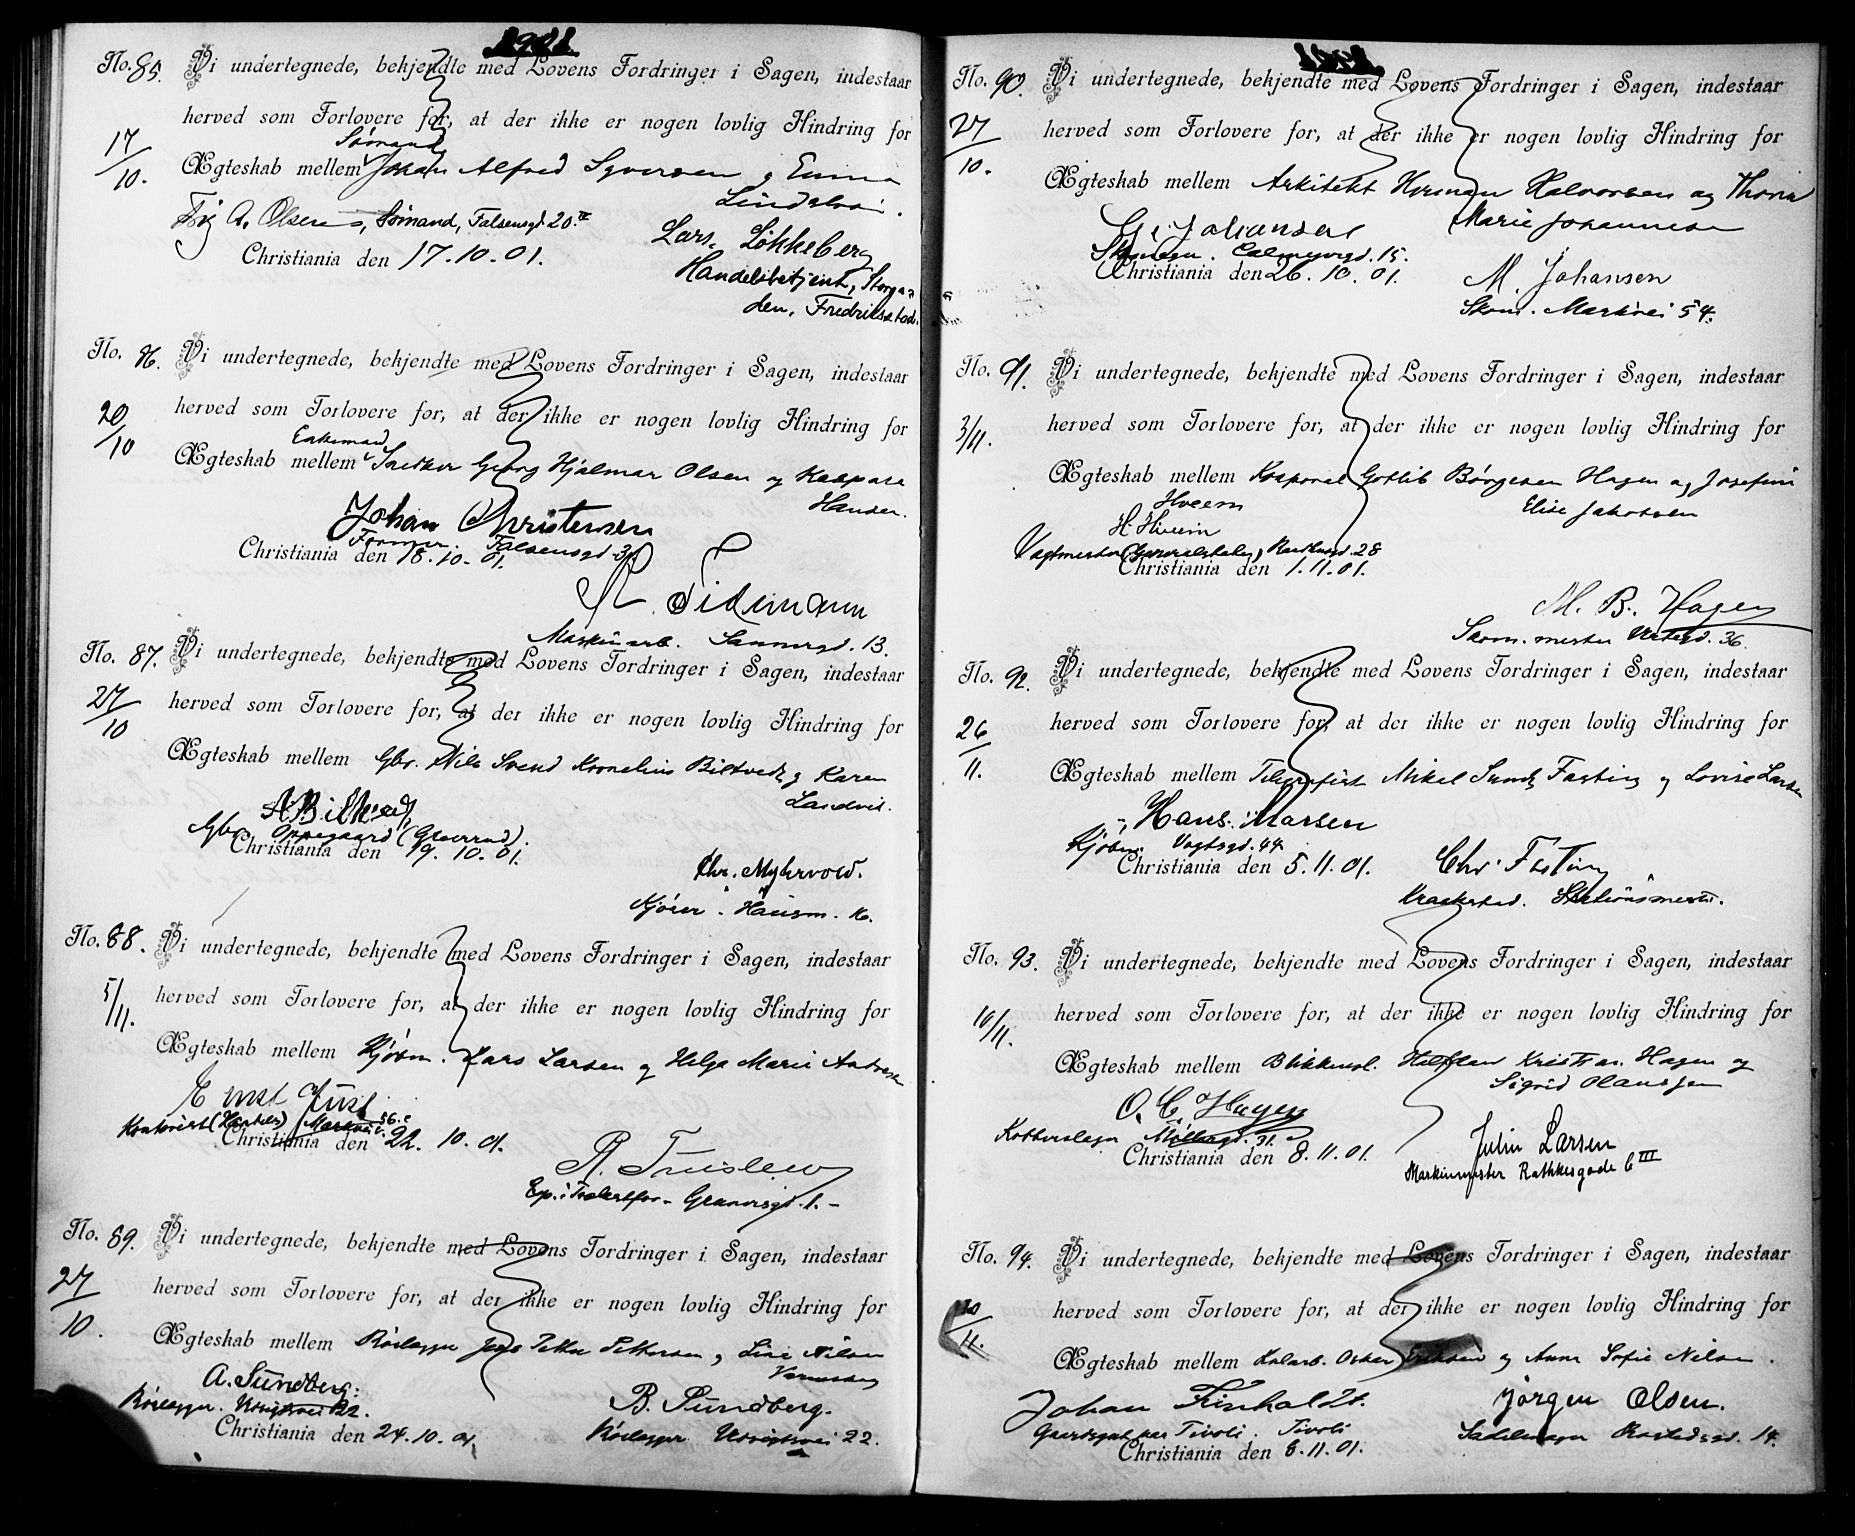 1901.
No. 85. Vi undertegnede, bekjendte med Lovens Fordringer i Sagen, indestaar
herved som Forlovere for, at der ikke er nogen lovlig Hindring for
17/10.
Sømand
Ægteskab mellem Johan Alfred Syversen og Emma
A. Olsen, Sømand, Falsensgd. 20 IV
Lars Løkkeberg
Christiania den 17.10.01.
Handelsbetjent, Storga-
den, Fredriksstad.
No. 86. Vi undertegnede, bekjendte med Lovens Fordringer i Sagen, indestaar
herved som Forlovere for, at der ikke er nogen lovlig Hindring for
20/10
Enkemand
Ægteskab mellem Snedker Georg Hjalmar Olsen og Kaspara
Hansen.
Johan Christensen
Former. Falsensgd. 3
Christiania den 18.10.01.
Tidemann
Maskinarb. Sannergd. 13.
No. 87. Vi undertegnede, bekjendte med Lovens Fordringer i Sagen, indestaar
herved som Forlovere for, at der ikke er nogen lovlig Hindring for
27/10
Ægteskab mellem Gbr. Nils Svend Kornelius Biltvedt og Karen
Landvik.
A Biltvedt,
Gbr. Oppegaard
Christiania den 19.10.01.
Chr. Myhrvold.
No. 88. Vi undertegnede, bekjendte med Lovens Fordringer i Sagen, indestaar
herved som Forlovere for, at der ikke er nogen lovlig Hindring for
5/11.
Ægteskab mellem Kjøbm. Lars Larsen og Helga Marie Andresen
Ernst Juul
Kontorist (Handels) Markvei 56.
Christiania den 22.10.01.
No. 89. Vi undertegnede, bekjendte med Lovens Fordringer i Sagen, indestaar
herved som Forlovere for, at der ikke er nogen lovlig Hindring for
27/10.
Ægteskab mellem Rørlægger Petter Pettersen og Lise Nilsen
A. Sundberg.
Rørlægger. 22.
Christiania den 24.10.01
B. Sundberg.
Rørlægger 22.
1901.
No. 90. Vi undertegnede, bekjendte med Lovens Fordringer i Sagen, indestaar
herved som Forlovere for, at der ikke er nogen lovlig Hindring for
27/10.
Ægteskab mellem Arkitekt Herman Halvorsen og Thora
Marie Johannesen
Johansen
Calmeyersgd. 15.
Christiania den 26.10.01.
M. Johansen
Skom. Markvei 54.
No. 91. Vi undertegnede, bekjendte med Lovens Fordringer i Sagen, indestaar
herved som Forlovere for, at der ikke er nogen lovlig Hindring for
3/11.
Ægteskab mellem Korporal Gotlib Børgesen Hagen og Josefine
Hveem
Elise Jakobsen
H. Hveem
Vagtmester (Generalstaben) 28
Christiania den 1.11.01.
M. B. Hagen
Skom. mester 36.
No. 92. Vi undertegnede, bekjendte med Lovens Fordringer i Sagen, indestaar
herved som Forlovere for, at der ikke er nogen lovlig Hindring for
26/11.
Ægteskab mellem Telegrafist Mikel Sundt Fasting og Lovise Larsen
Hans Marsen
Kjøbm. Vogtsgd. 44.
Christiania den 5.11.01.
Chr Fasting
Kraakstad. Stationsmester.
No. 93. Vi undertegnede, bekjendte med Lovens Fordringer i Sagen, indestaar
herved som Forlovere for, at der ikke er nogen lovlig Hindring for
10/11.
Ægteskab mellem Blikkensl. Halfdan Kristian Hagen og
Sigrid Olaussen
O. C. Hagen
Kobberslager Møllergd. 31.
Christiania den 8.11.01.
Julius Larsen
Maskinmester Rathkesgade 6 III
No. 94. Vi undertegnede, bekjendte med Lovens Fordringer i Sagen, indestaar
herved som Forlovere for, at der ikke er nogen lovlig Hindring for
10/11.
Ægteskab mellem Oskar Eriksen og Anna Sofie Nilsen.
Johan Finholdt.
Jörgen Olsen.
Tivoli. Tivoli
Sadelmager 14.
Christiania den 8.11.01.